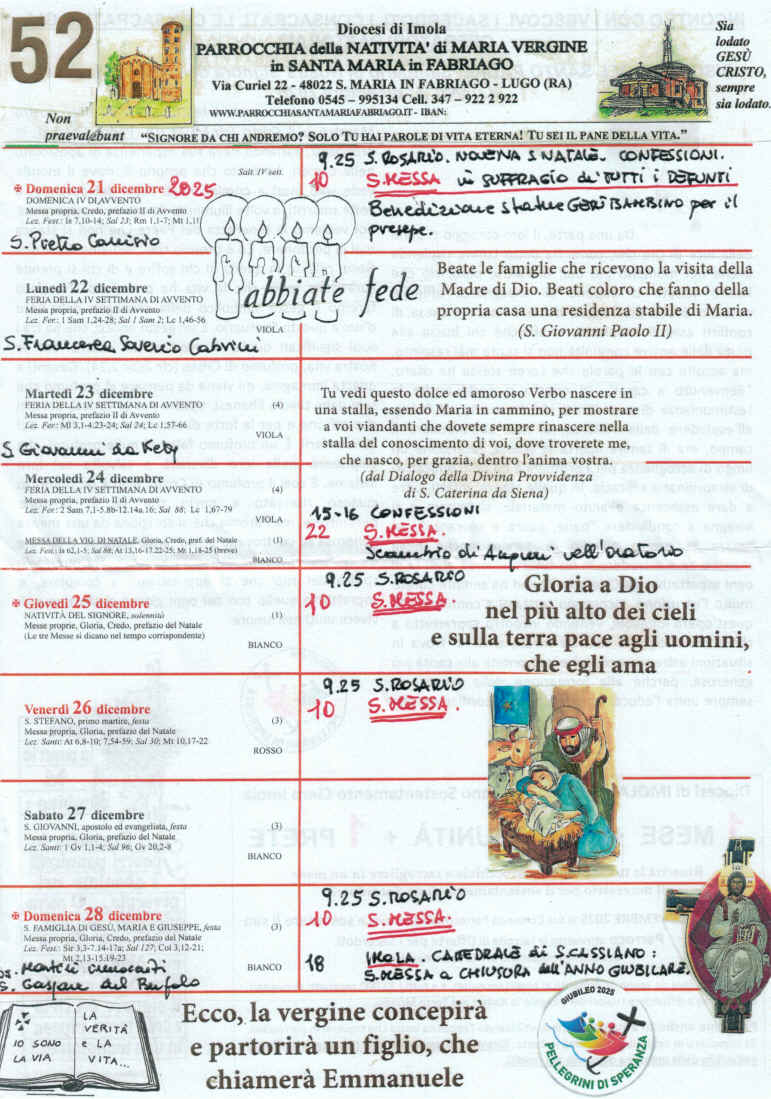 52
Diocesi di Imola
PARROCCHIA della NATIVITA' di MARIA VERGINE
in SANTA MARIA in FABRIAGO
Via Curiel 22 - 48022 S. MARIA IN FABRIAGO - LUGO (RA)
Telefono 0545 – 995134 Cell. 347 – 922 2 922
WWW.PARROCCHIASANTAMARIAFABRIAGO.IT - IBAN:
Sia
lodato
GESÙ
CRISTO,
sempre
sia lodato.
Non
praevalebunt
“SIGNORE DA CHI ANDREMO? SOLO TU HAI PAROLE DI VITA ETERNA! TU SEI IL PANE DELLA VITA.”
Salt. IV sett.
✠ Domenica 21 dicembre 2025
DOMENICA IV DI AVVENTO
Messa propria, Credo, prefazio II di Avvento
Lez. Fest.: Is 7,10-14; Sal 23; Rm 1,1-7; Mt 1,1
S. Pietro Canisio
9.25 S. ROSARIO. NOVENA S. NATALE. CONFESSIONI.
10 S. MESSA in SUFFRAGIO di TUTTI I DEFUNTI
Benedizione statue GESÙ BAMBINO per il
presepe.
abbiate fede
Lunedì 22 dicembre
FERIA DELLA IV SETTIMANA DI AVVENTO
Messa propria, prefazio II di Avvento
Lez. Fer.: 1 Sam 1,24-28; Sal 1 Sam 2; Lc 1,46-56
VIOLA
S. Francesca Saverio Cabrini
Beate le famiglie che ricevono la visita della
Madre di Dio. Beati coloro che fanno della
propria casa una residenza stabile di Maria.
(S. Giovanni Paolo II)
Martedì 23 dicembre
FERIA DELLA IV SETTIMANA DI AVVENTO (4)
Messa propria, prefazio II di Avvento
Lez. Fer.: Ml 3,1-4.23-24; Sal 24; Lc 1,57-66
VIOLA
S Giovanni da Kety
Tu vedi questo dolce ed amoroso Verbo nascere in
una stalla, essendo Maria in cammino, per mostrare
a voi viandanti che dovete sempre rinascere nella
stalla del conoscimento di voi, dove troverete me,
che nasco, per grazia, dentro l'anima vostra.
(dal Dialogo della Divina Provvidenza
di S. Caterina da Siena)
Mercoledì 24 dicembre
FERIA DELLA IV SETTIMANA DI AVVENTO (4)
Messa propria, prefazio II di Avvento
Lez. Fer.: 2 Sam 7,1-5.8b-12.14a.16; Sal 88; Lc 1,67-79
VIOLA
MESSA DELLA VIG. DI NATALE, Gloria, Credo, pref. del Natale (1)
Lez. Fest.: Is 62,1-5; Sal 88; At 13,16-17.22-25; Mt 1,18-25 (breve)
BIANCO
15-16 CONFESSIONI
22 S. MESSA.
Scambio di Auguri nell'Oratorio
✠ Giovedì 25 dicembre
NATIVITÀ DEL SIGNORE, solennità (1)
Messe proprie, Gloria, Credo, prefazio del Natale
(Le tre Messe si dicano nel tempo corrispondente)
BIANCO
9.25 S. ROSARIO
10 S. MESSA.
Gloria a Dio
nel più alto dei cieli
e sulla terra pace agli uomini,
che egli ama
Venerdì 26 dicembre
S. STEFANO, primo martire, festa (3)
Messa propria, Gloria, prefazio del Natale
Lez. Santi: At 6,8-10; 7,54-59; Sal 30; Mt 10,17-22
ROSSO
9.25 S. ROSARIO
10 S. MESSA.
Sabato 27 dicembre
S. GIOVANNI, apostolo ed evangelista, festa (3)
Messa propria, Gloria, prefazio del Natale
Lez. Santi: 1 Gv 1,1-4; Sal 96; Gv 20,2-8
BIANCO
✠ Domenica 28 dicembre
S. FAMIGLIA DI GESÙ, MARIA E GIUSEPPE, festa (3)
Messa propria, Gloria, Credo, prefazio del Natale
Lez. Fest.: Sir 3,3-7.14-17a; Sal 127; Col 3,12-21;
Mt 2,13-15.19-23
BIANCO
Martiri innocenti
S. Gaspare del Bufalo
9.25 S. ROSARIO
10 S. MESSA.
18 IMOLA. CATTEDRALE di S. CASSIANO:
S. MESSA a CHIUSURA dell'ANNO GIUBILARE.
IO SONO
LA VIA
LA
VERITÀ
e LA
VITA...
Ecco, la vergine concepirà
e partorirà un figlio, che
chiamerà Emmanuele
GIUBILEO 2025
PELLEGRINI DI SPERANZA